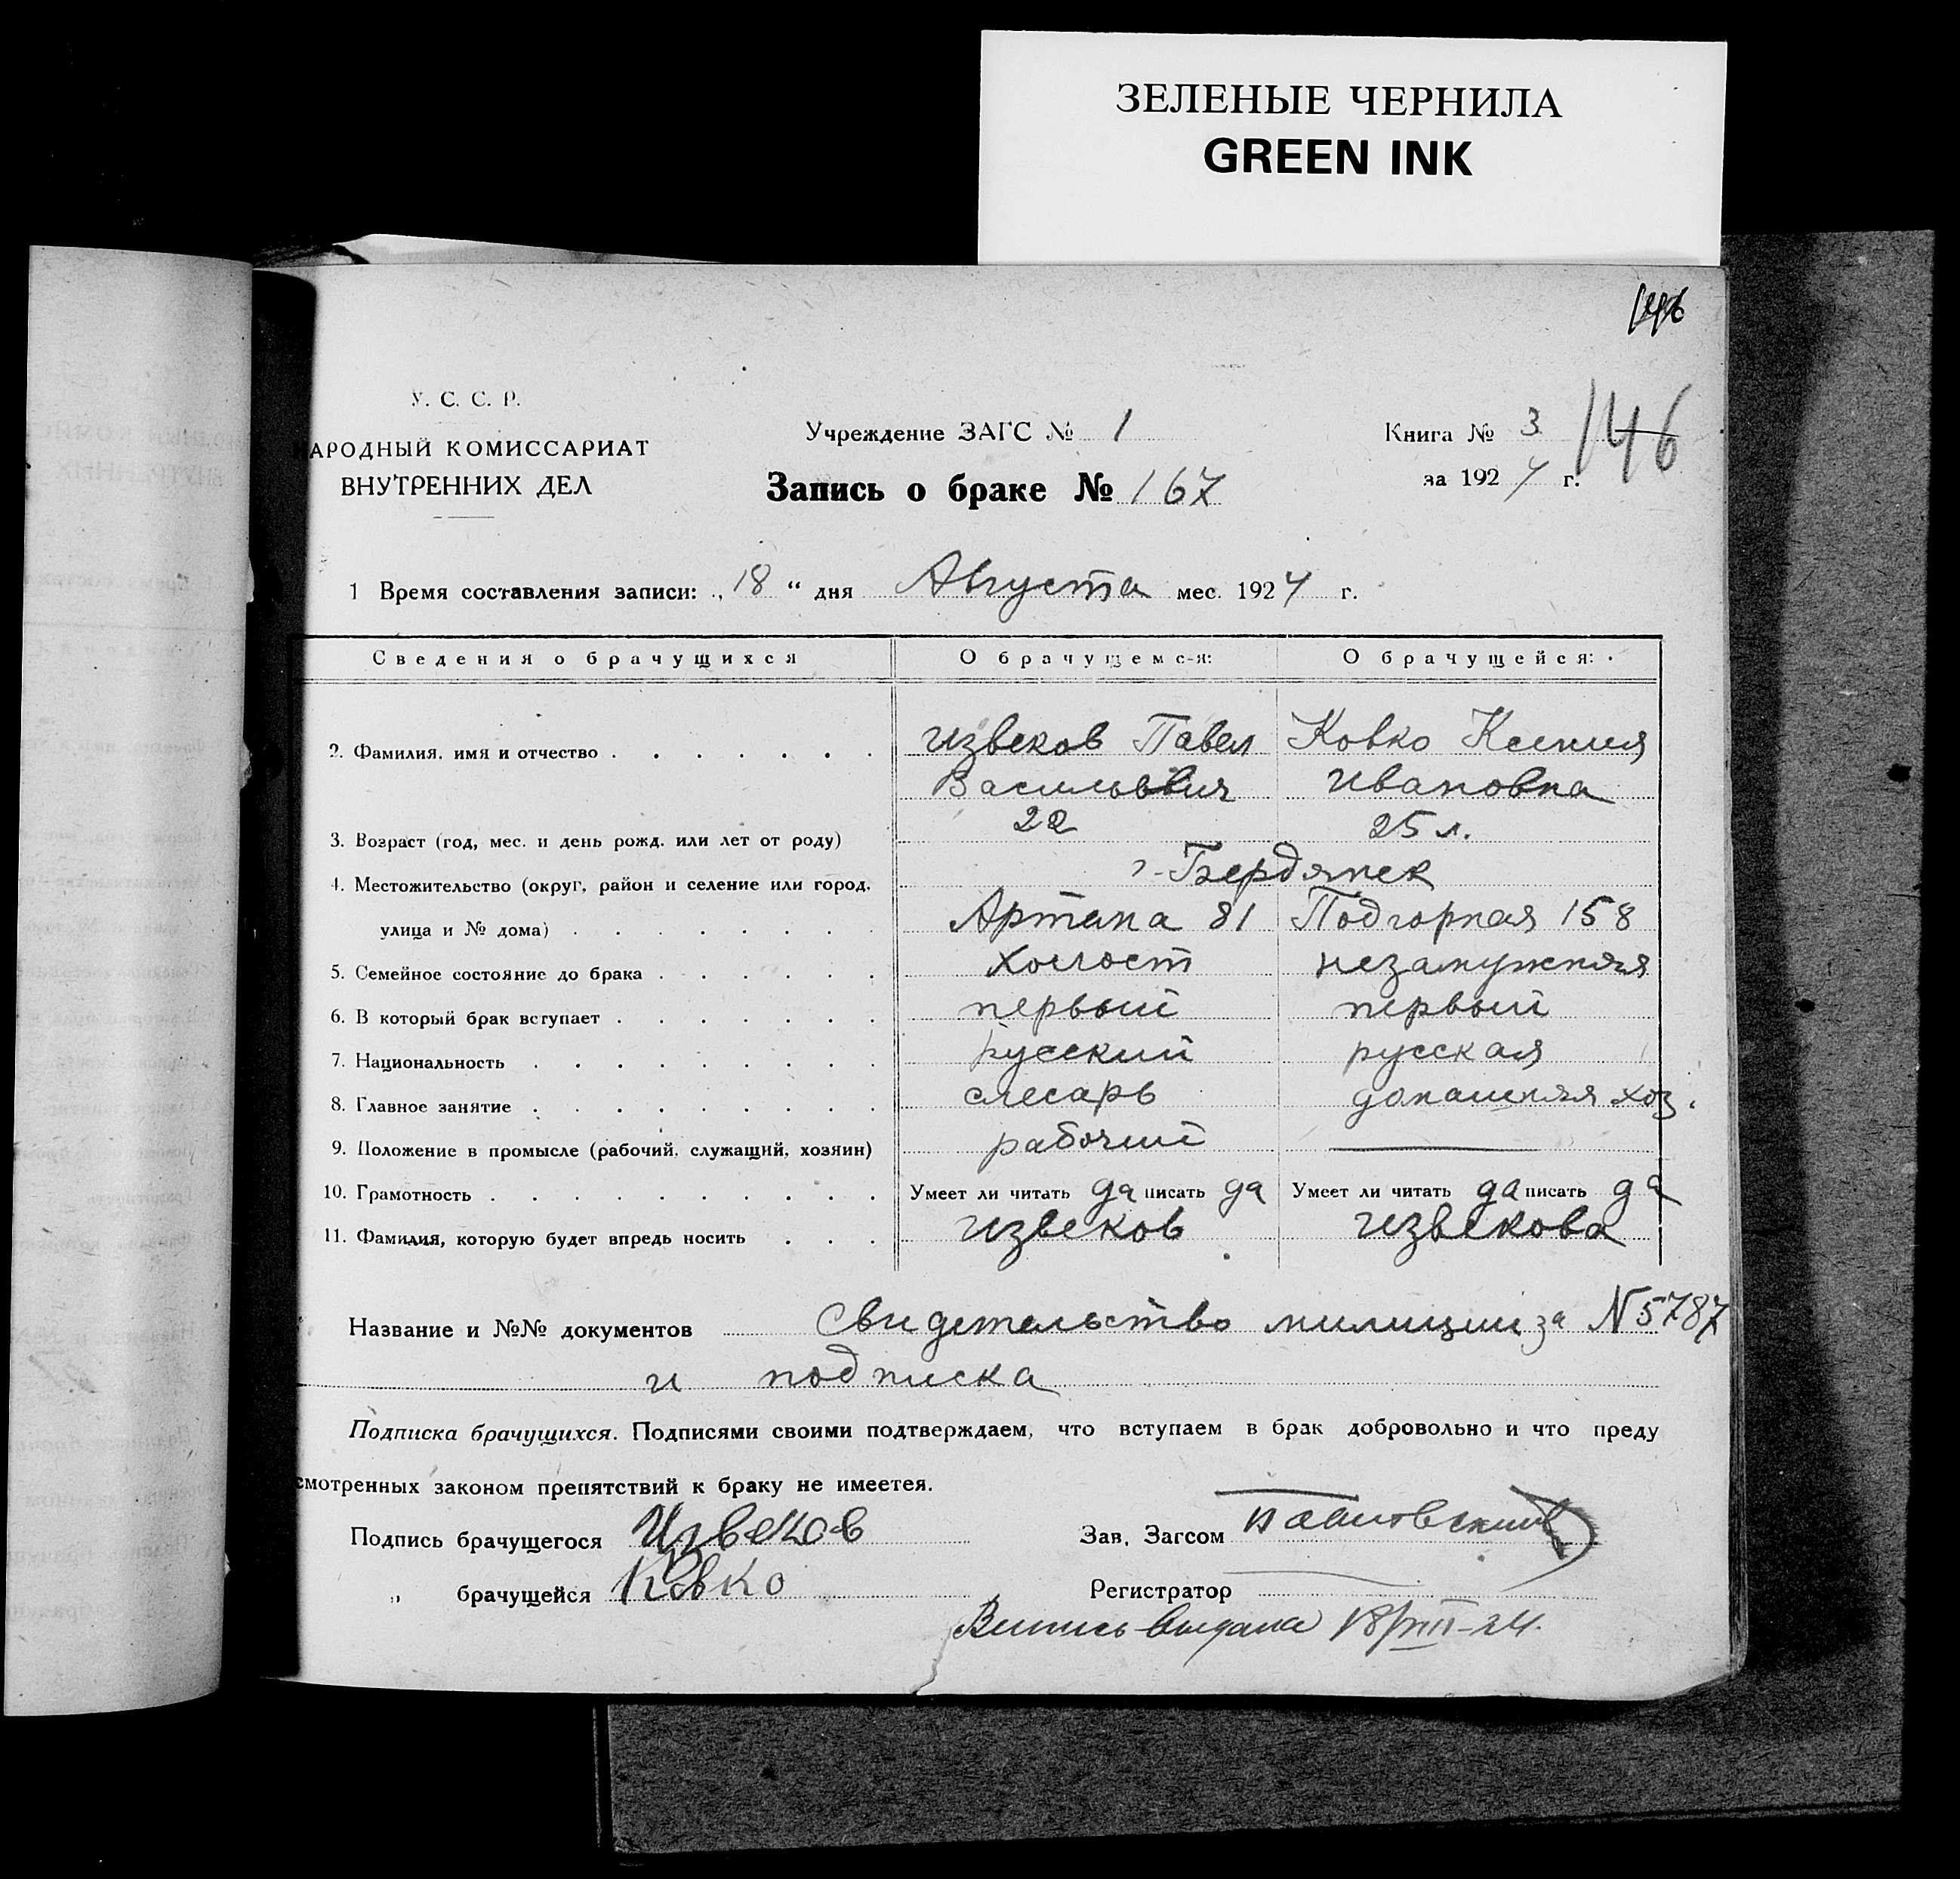 ЗЕЛЕНЫЕ ЧЕРНИЛА
GREEN INK
146
У. С. С. Р.
НАРОДНЫЙ КОМИССАРИАТ
ВНУТРЕННИХ ДЕЛ
Учреждение ЗАГС № 1
Запись о браке № 167
Книга № 3
за 1924 г.
146
1 Время составления записи: „18 “ дня Августа мес. 1924 г.
Сведения о брачущихся О брачущемс-я: О брачущейся:
2. Фамилия, имя и отчество Извеков Павел Ковко Ксения
Васильевич Ивановна
3. Возраст (год, мес. и день рожд. или лет от роду) 22 25 л.
4. Местожительство (округ, район и селение или город, г. Бердянск
улица и № дома) Артема 81 Подгорная 158
5. Семейное состояние до брака холост незамужняя
6. В который брак вступает первый первый
7. Национальность русский русская
8. Главное занятие слесарь домашняя хоз.
9. Положение в промысле (рабочий, служащий, хозяин) рабочий
10. Грамотность Умеет ли читать да писать да Умеет ли читать да писать да
11. Фамилия, которую будет впредь носить Извеков Извекова
Название и №№ документов Свидетельство милиции за N 5787
и подписка
Подписка брачущихся. Подписями своими подтверждаем, что вступаем в брак добровольно и что преду
смотренных законом препятствий к браку не имеетея.
Подпись брачущегося Извеков Зав. Загсом
„ брачущейся Ковко Регистратор
Выпись выдана 18/VIII-24.